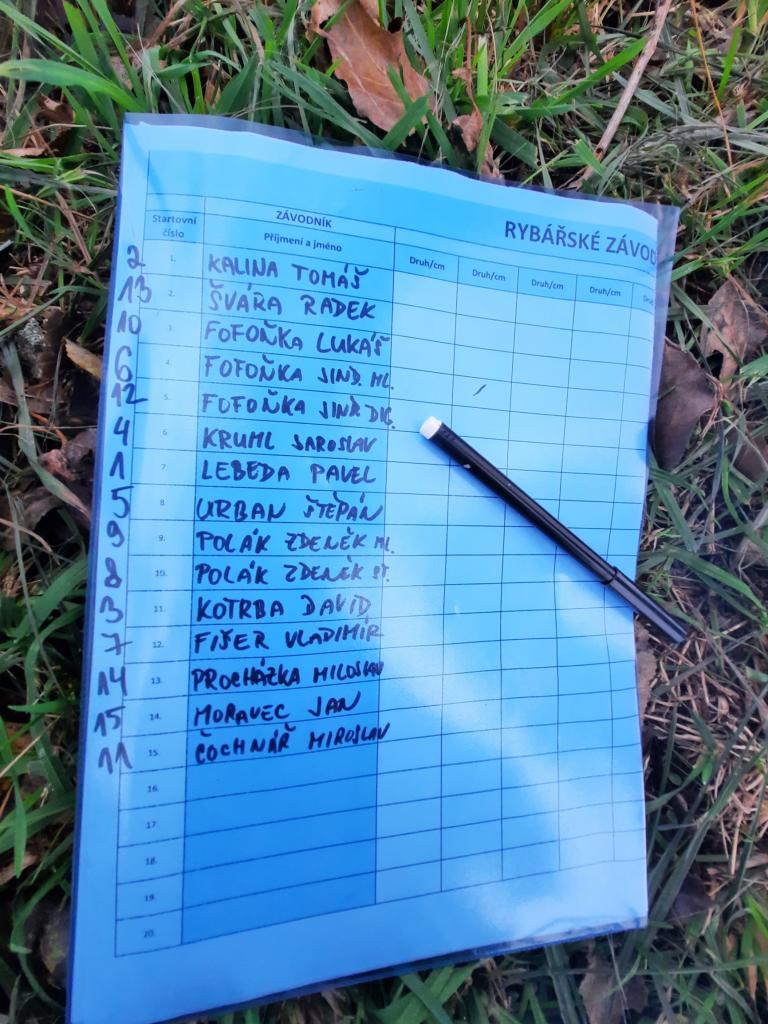 RYBÁŘSKÉ ZÁVOD
Startovní číslo ZÁVODNÍK
Příjmení a jméno Druh/cm Druh/cm Druh/cm Druh/cm Dru
2 1. KALINA TOMÁŠ
13 2. ŠVÁRA RADEK
10 3. FOFOŇKA LUKÁŠ
6 4. FOFOŇKA JIND. ML.
12 5. FOFOŇKA JINDR
4 6. KRUML JAROSLAV
1 7. LEBEDA PAVEL
5 8. URBAN ŠTĚPÁN
9 9. POLÁK ZDENĚK ML.
8 10. POLÁK ZDENĚK ST.
3 11. KOTRBA DAVID
7 12. FIŠER VLADIMÍR
14 13. PROCHÁZKA MILOSLAV
15 14. MORAVEC JAN
11 15. ČOCHNÁŘ MIROSLAV
16.
17.
18.
19.
20.